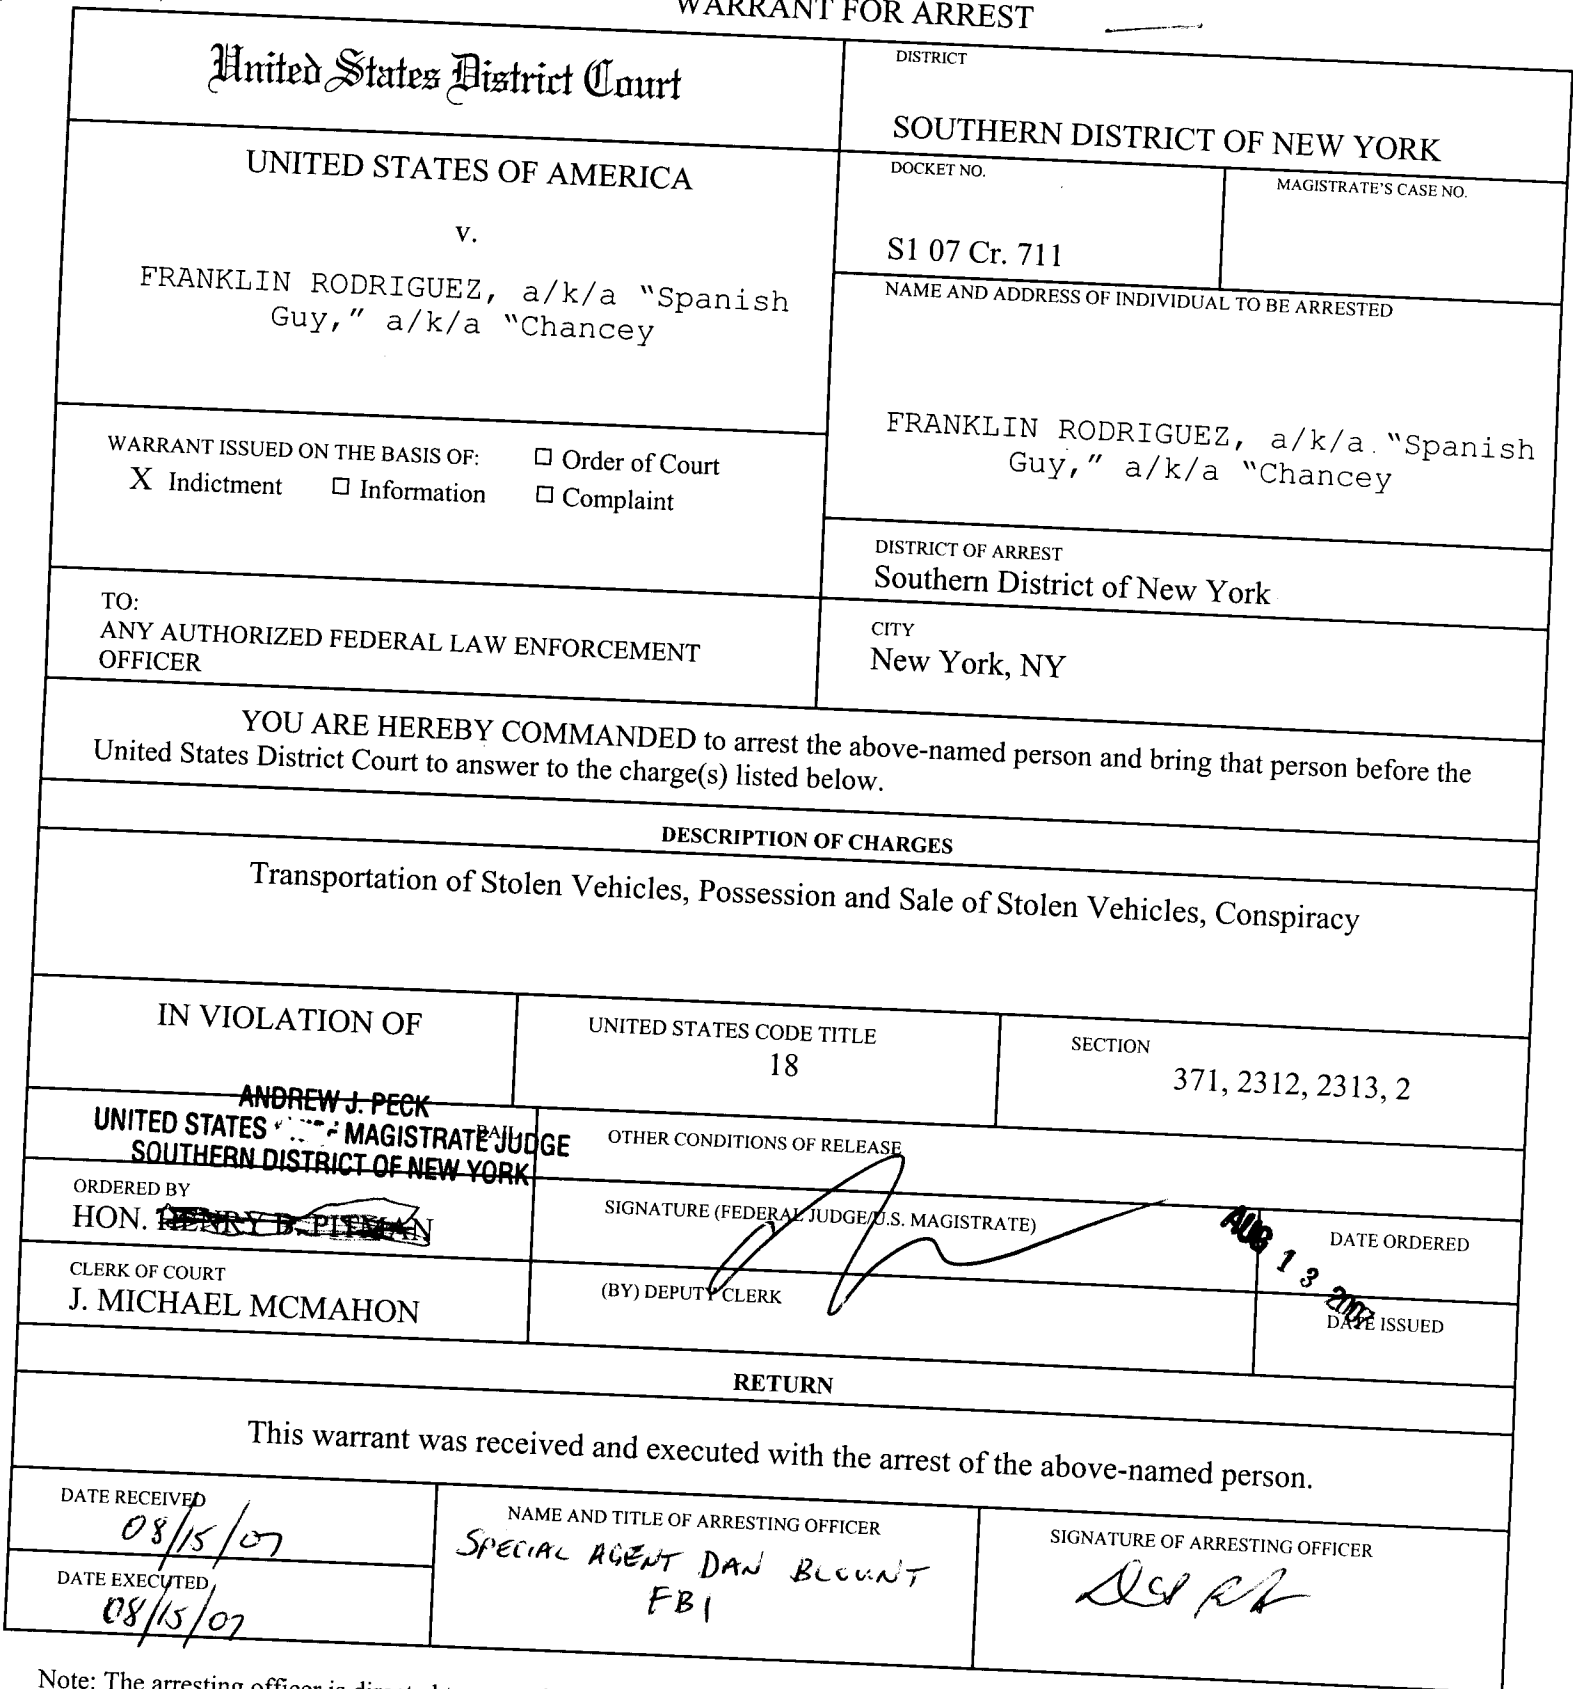 WARRANT FOR ARREST
United States District Court
DISTRICT
SOUTHERN DISTRICT OF NEW YORK
UNITED STATES OF AMERICA
v.
FRANKLIN RODRIGUEZ, a/k/a "Spanish
Guy," a/k/a "Chancey
DOCKET NO.
S1 07 Cr. 711
MAGISTRATE'S CASE NO.
NAME AND ADDRESS OF INDIVIDUAL TO BE ARRESTED
FRANKLIN RODRIGUEZ, a/k/a "Spanish
Guy," a/k/a "Chancey
WARRANT ISSUED ON THE BASIS OF: ☐ Order of Court
X Indictment ☐ Information ☐ Complaint
DISTRICT OF ARREST
Southern District of New York
TO:
ANY AUTHORIZED FEDERAL LAW ENFORCEMENT
OFFICER
CITY
New York, NY
YOU ARE HEREBY COMMANDED to arrest the above-named person and bring that person before the
United States District Court to answer to the charge(s) listed below.
DESCRIPTION OF CHARGES
Transportation of Stolen Vehicles, Possession and Sale of Stolen Vehicles, Conspiracy
IN VIOLATION OF
UNITED STATES CODE TITLE
18
SECTION
371, 2312, 2313, 2
ANDREW J. PECK
UNITED STATES MAGISTRATE JUDGE
SOUTHERN DISTRICT OF NEW YORK
BAIL
OTHER CONDITIONS OF RELEASE
ORDERED BY
HON. HENRY B. PITMAN
SIGNATURE (FEDERAL JUDGE/U.S. MAGISTRATE)
AUG 13 2007
DATE ORDERED
CLERK OF COURT
J. MICHAEL MCMAHON
(BY) DEPUTY CLERK
DATE ISSUED
RETURN
This warrant was received and executed with the arrest of the above-named person.
DATE RECEIVED
08/15/07
NAME AND TITLE OF ARRESTING OFFICER
SPECIAL AGENT DAN BLOUNT
FBI
SIGNATURE OF ARRESTING OFFICER
DATE EXECUTED
08/15/07
Note: The arresting officer is directed